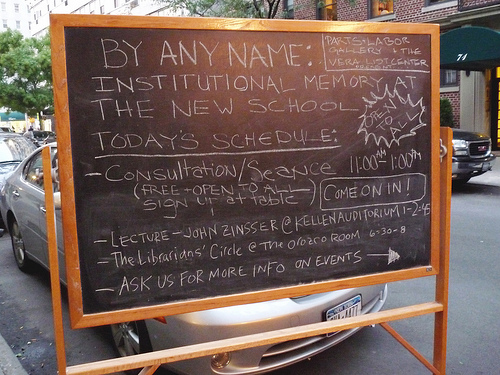 PARTS & LABOR
GALLERY & THE
VERA LIST CENTER
PRESENT
BY ANY NAME:
INSTITUTIONAL MEMORY AT
THE NEW SCHOOL
OPEN
TO
ALL
TODAY'S SCHEDULE:
- CONSULTATION/SEANCE 11:00AM - 1:00PM
(FREE + OPEN TO ALL -
SIGN UP AT TABLE)
COME ON IN!
- LECTURE - JOHN ZINSSER @ KELLEN AUDITORIUM 1-2:45
- The LIBRARIANS' CIRCLE @ THE OROZCO ROOM 6:30-8
- ASK US FOR MORE INFO ON EVENTS →
74